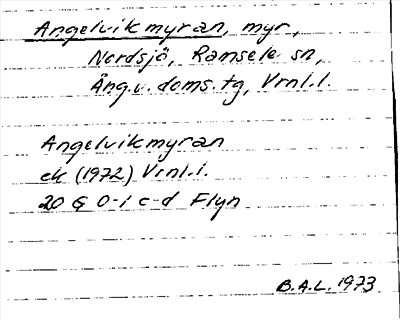 Angelvikmyran, myr,
Nordsjö, Ramsele sn,
Äng.v. doms.tg, Vrnl.l.
Angelvikmyran
ek (1972) Vrnl.l.
20 G 0-1 c-d Flyn
B.A.L. 1973